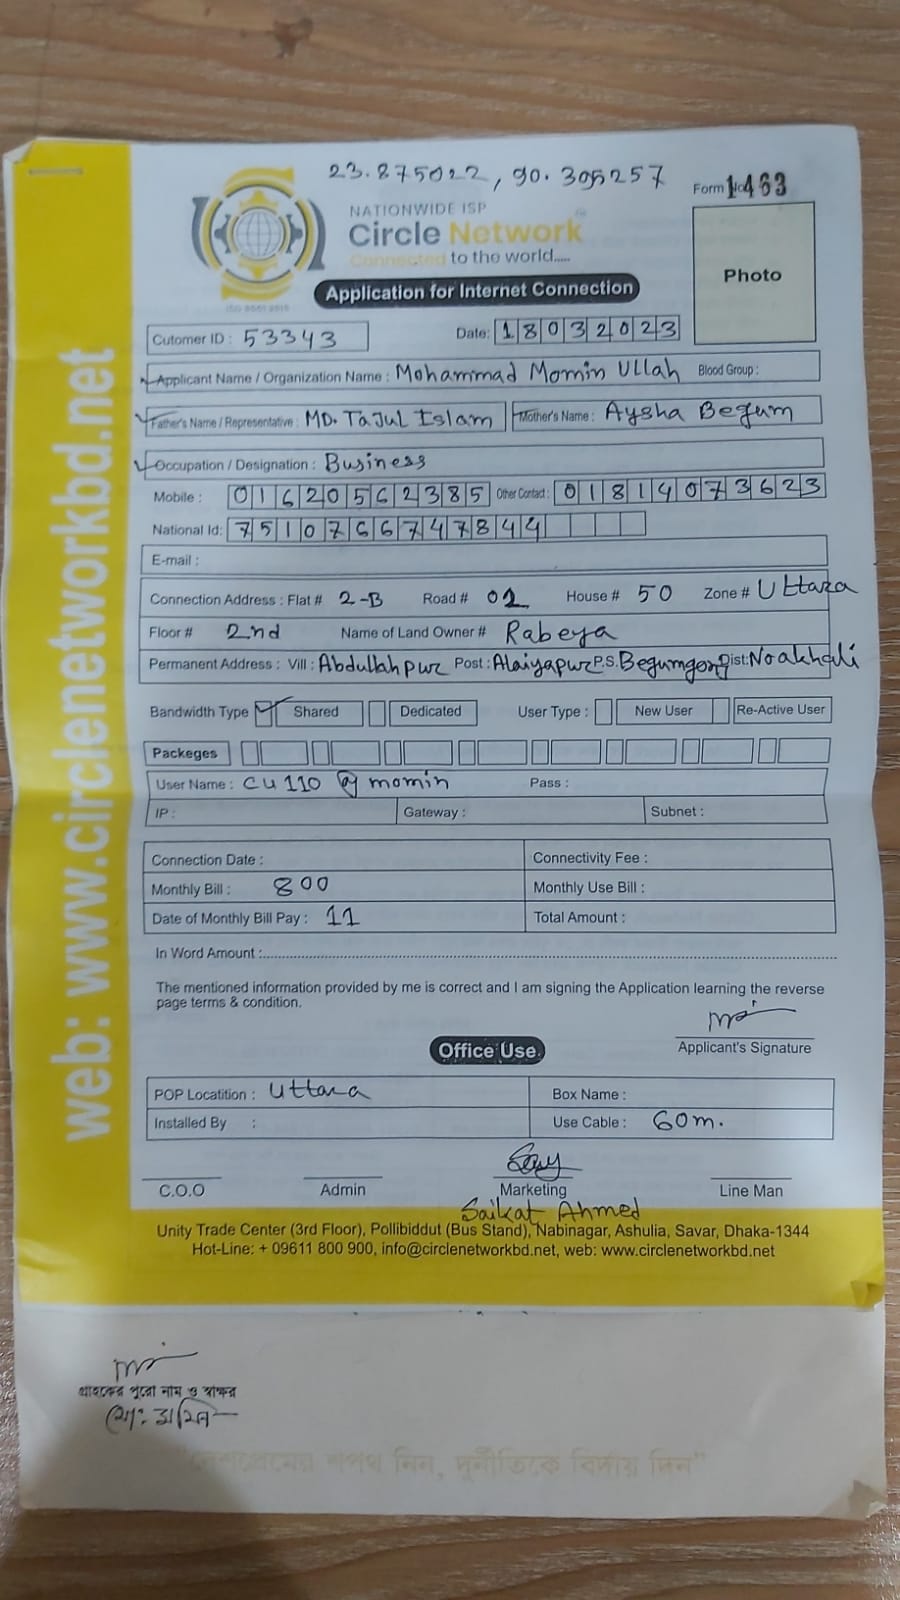 23.875022, 90.395257
Form No 1463
NATIONWIDE ISP
Circle Network
Connected to the world.....
Photo
Application for Internet Connection
Cutomer ID : 53343
Date: 18032023
Applicant Name / Organization Name : Mohammad Momin Ullah Blood Group :
Father's Name / Representative : MD. Tajul Islam Mother's Name : Aysha Begum
Occupation / Designation : Business
Mobile : 01620562385 Other Contact : 01814073623
National Id: 7510766747844
E-mail :
Connection Address : Flat # 2-B Road # 02 House # 50 Zone # Uttara
Floor # 2nd Name of Land Owner # Rabeya
Permanent Address : Vill : Abdullahpur Post : Alaiyapur P.S. Begumgonj Dist: Noakhali
Bandwidth Type Shared Dedicated User Type : New User Re-Active User
Packeges
User Name : cu110 @ momin Pass :
IP : Gateway : Subnet :
Connection Date : Connectivity Fee :
Monthly Bill : 800 Monthly Use Bill :
Date of Monthly Bill Pay : 11 Total Amount :
In Word Amount :
The mentioned information provided by me is correct and I am signing the Application learning the reverse
page terms & condition.
Applicant's Signature
Office Use
POP Locatition : Uttara Box Name :
Installed By : Use Cable : 60m.
C.O.O Admin Marketing Line Man
Saikat Ahmed
Unity Trade Center (3rd Floor), Pollibiddut (Bus Stand), Nabinagar, Ashulia, Savar, Dhaka-1344
Hot-Line: + 09611 800 900, info@circlenetworkbd.net, web: www.circlenetworkbd.net
web: www.circlenetworkbd.net
গ্রাহকের পুরো নাম ও স্বাক্ষর
মো: মমিন
"দেশপ্রেমের শপথ নিন, দুর্নীতিকে বিদায় দিন"